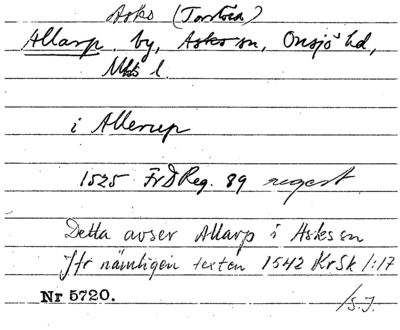 Asks (Torstorp)
Allarp, by, Asks sn, Onsjö hd,
Mlhs l.
i Allerup
1525 FrDReg. 89 regest
Detta avser Allarp i Asks sn
Jfr nämligen texten 1542 KrSk 1:17
Nr 5720.
/S.J.